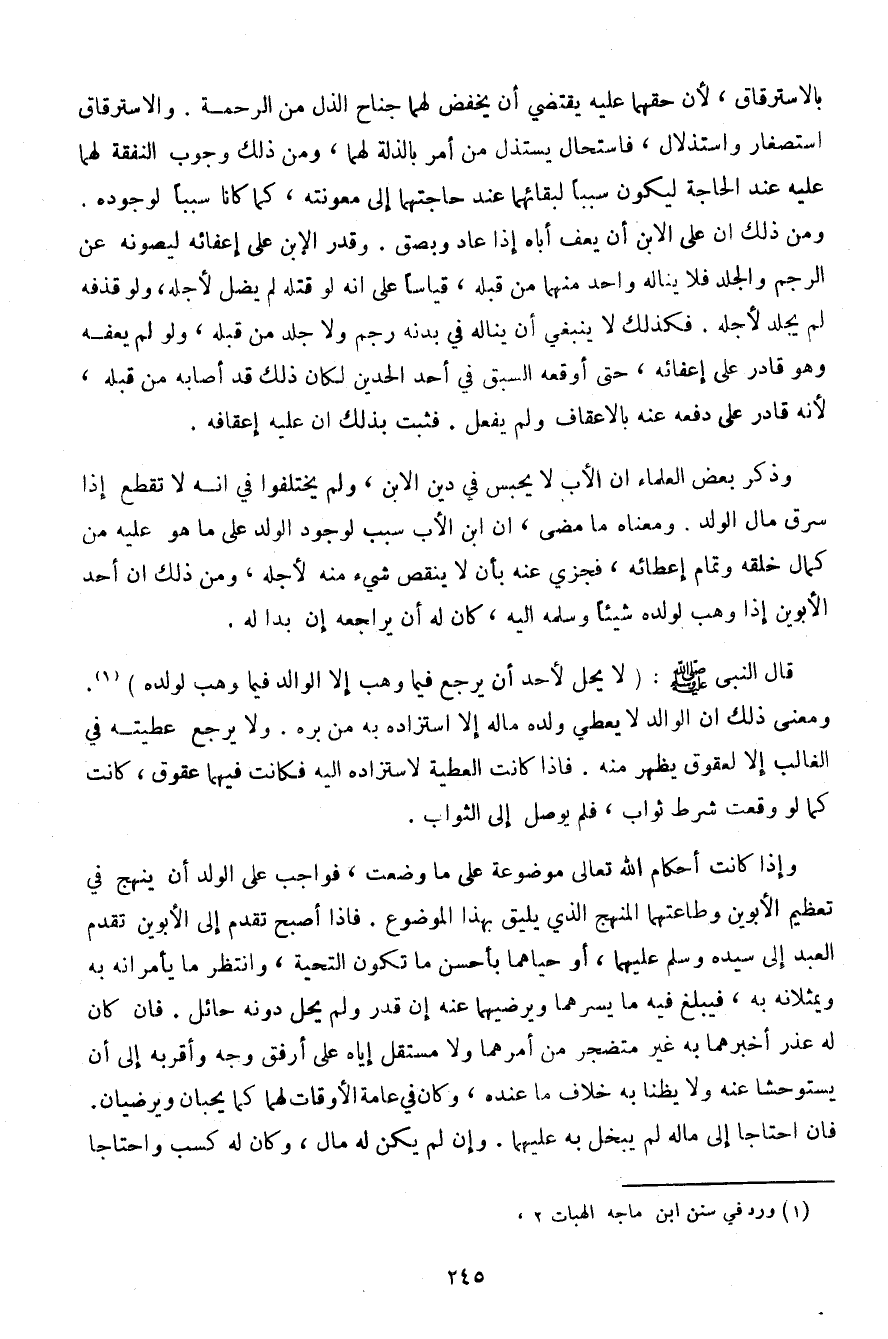 بالاسترقاق ، لأن حقهما عليه يقتضي أن يخفض لهما جناح الذل من الرحمة . والاسترقاق
استصغار واستذلال ، فاستحال يستذل من أمر بالذلة لهما ، ومن ذلك وجوب النفقة لهما
عليه عند الحاجة ليكون سبباً لبقائهما عند حاجتهما إلى معونته ، كما كانا سبباً لوجوده .
ومن ذلك ان على الابن أن يعف أباه إذا عاد وبصق . وقدر الإبن على إعفائه ليصونه عن
الرجم والجلد فلا يناله واحد منهما من قبله ، قياساً على انه لو قتله لم يضل لأجله، ولو قذفه
لم يجلد لأجله . فكذلك لا ينبغي أن يناله في بدنه رجم ولا جلد من قبله ، ولو لم يعفه
وهو قادر على إعفائه ، حتى أوقعه السبق في أحد الحدين لكان ذلك قد أصابه من قبله ،
لأنه قادر على دفعه عنه بالاعقاف ولم يفعل . فثبت بذلك ان عليه إعقافه .
وذكر بعض العلماء ان الأب لا يحبس في دين الابن ، ولم يختلفوا في انه لا تقطع إذا
سرق مال الولد . ومعناه ما مضى ، ان ابن الأب سبب لوجود الولد على ما هو عليه من
كمال خلقه وتمام إعطائه ، فجزي عنه بأن لا ينقص شيء منه لأجله ، ومن ذلك ان أحد
الأبوين إذا وهب لولده شيئاً وسلمه اليه ، كان له أن يراجعه إن بدا له .
قال النبي ﷺ : ( لا يحل لأحد أن يرجع فيما وهب إلا الوالد فيما وهب لولده ) (١).
ومعنى ذلك ان الوالد لا يعطي ولده ماله إلا استزاده به من بره . ولا يرجع عطيته في
الغالب إلا لعقوق يظهر منه . فاذا كانت العطية لاستزاده اليه فكانت فيهما عقوق ، كانت
كما لو وقعت شرط ثواب ، فلم يوصل إلى الثواب .
وإذا كانت أحكام الله تعالى موضوعة على ما وضعت ، فواجب على الولد أن ينهج في
تعظيم الأبوين وطاعتهما المنهج الذي يليق بهذا الموضوع . فاذا أصبح تقدم إلى الأبوين تقدم
العبد إلى سيده وسلم عليهما ، أو حياهما بأحسن ما تكون التحية ، وانتظر ما يأمرانه به
ويمثلانه به ، فيبلغ فيه ما يسرهما ويرضيهما عنه إن قدر ولم يحل دونه حائل . فان كان
له عذر أخبرهما به غير متضجر من أمرهما ولا مستقل إياه على أرفق وجه وأقربه إلى أن
يستوحشا عنه ولا يظنا به خلاف ما عنده ، وكان في عامة الأوقات لهما كما يحبان ويرضيان.
فان احتاجا إلى ماله لم يبخل به عليهما . وإن لم يكن له مال ، وكان له كسب واحتاجا
(١) ورد في سنن ابن ماجه الهبات ٢ ،
٢٤٥